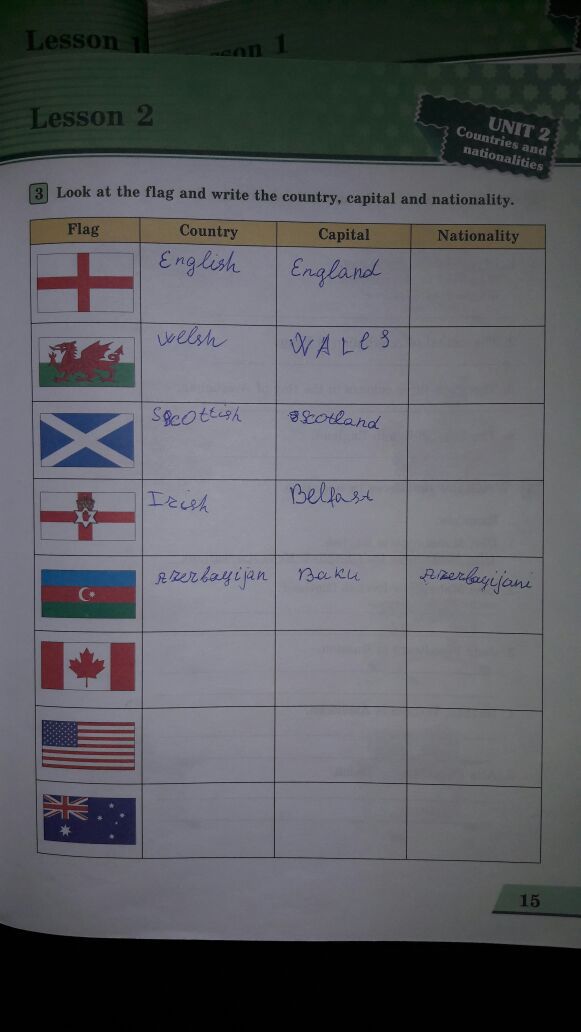 Lesson 1
son 1
Lesson 2
UNIT 2
Countries and
nationalities
3 Look at the flag and write the country, capital and nationality.
Flag Country Capital Nationality
English England
Welsh WALES
Scottish Scotland
Irish Belfast
Azerbayijan Baku Azerbayijani
15